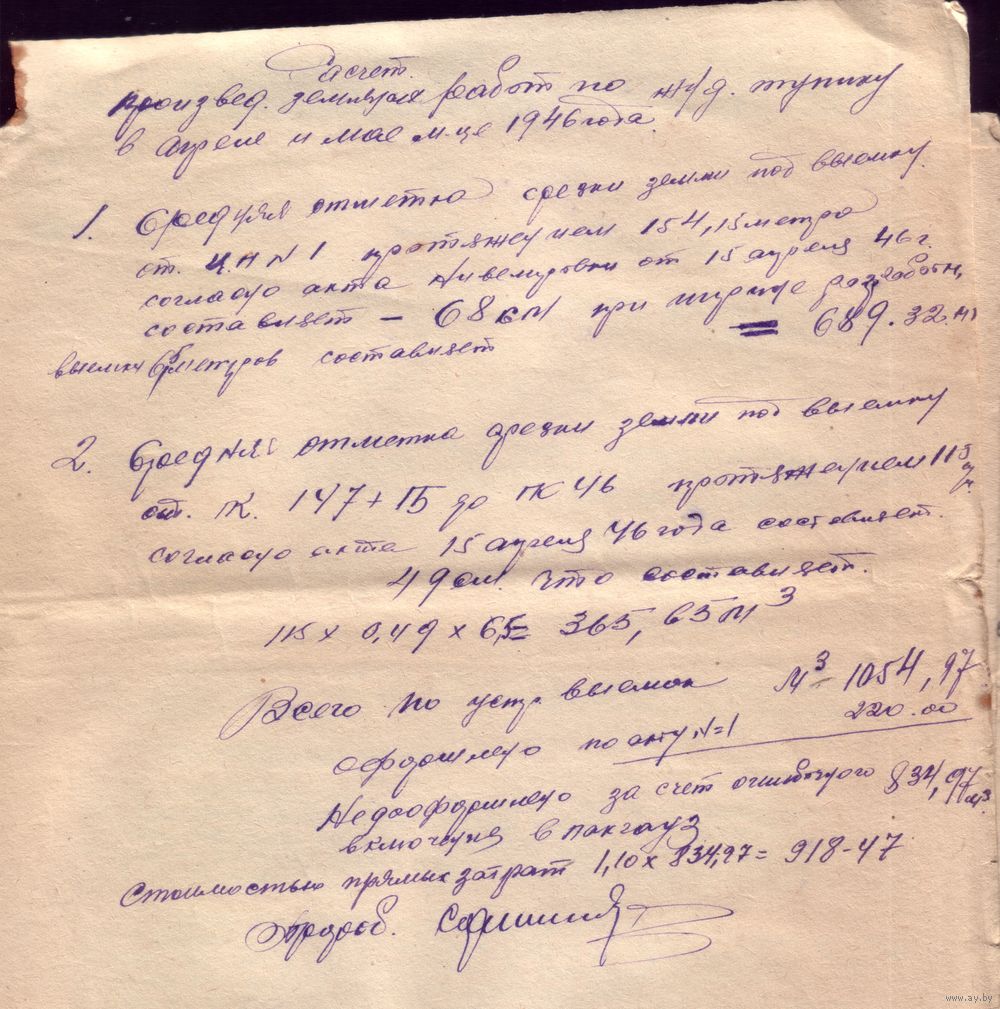 Расчет.
произвед. земляных работ по ж/д. тупику
в апреле и мае м-це 1946 года.
1. Средняя отметка срезки земли под выемку.
от. ц.п N 1 протяжением 154,15 метра
согласно акта Нивелировки от 15 апреля 46 г.
составляет – 68 см при ширине разработки,
выемки 6,5 метров составляет = 689.32 м3
2. Средняя отметка срезки земли под выемку
от. ПК. 147+15 до ПК 46 протяжением 115
согласно акта 15 апреля 46 года составляет.
49 см. что составляет.
115 x 0,49 x 6,5 = 365,65 м3
Всего по устр. выемок м3 – 1054,97
оформлено по акту N=1 220.00
Недооформлено за счет ошибочного 834,97 м3.
включения в пакгауз
Стоимостью прямых затрат 1,10 x 834,97 = 918-47
Прораб.
www.ay.by